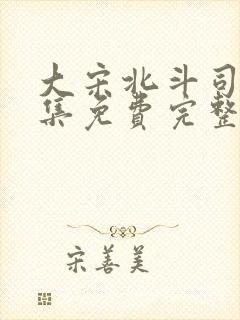 大宋北斗司
集免费完整
宋善美